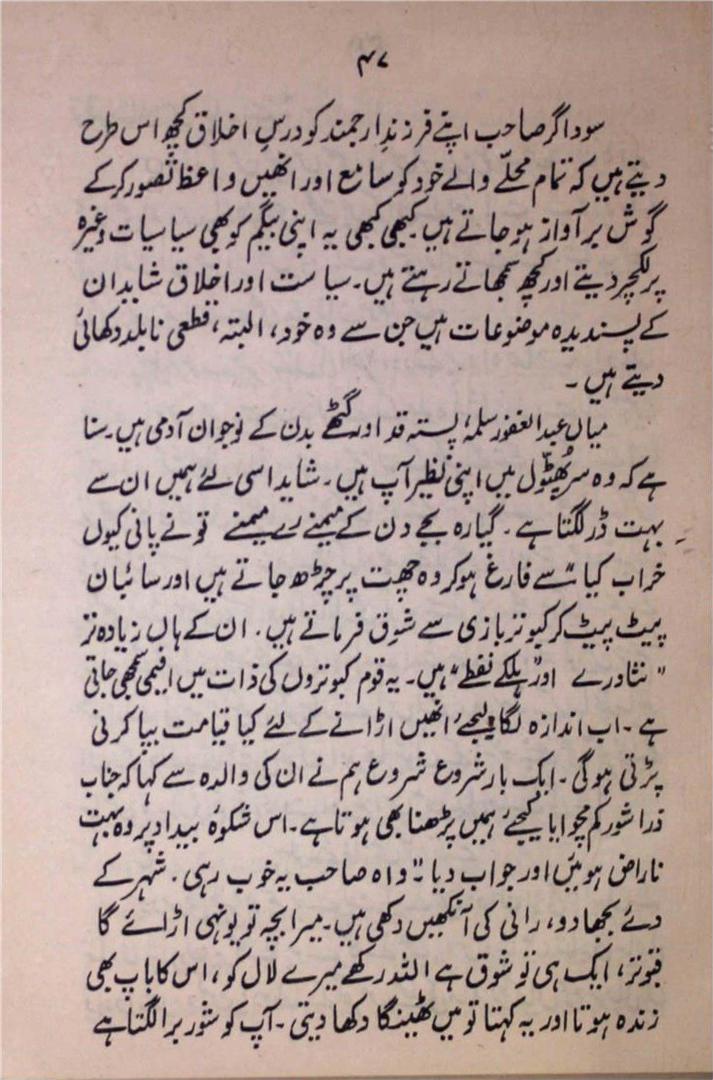 ۴۷
سوداگر صاحب اپنے فرزندِ ارجمند کو درسِ اخلاق کچھ اس طرح
دیتے ہیں کہ تمام محلّے والے خود کو سامع اور انھیں واعظ تصور کرکے
گوش بر آواز ہو جاتے ہیں کبھی کبھی یہ اپنی بیگم کو بھی سیاسیات وغیرہ
پر لکچر دیتے اور کچھ سمجھاتے رہتے ہیں۔ سیاست اور اخلاق شاید ان
کے پسندیدہ موضوعات ہیں جن سے وہ خود، البتہ، قطعی نابلد دکھائی
دیتے ہیں۔
میاں عبدالغفور سلمہٗ پستہ قد اور گٹھے بدن کے نوجوان آدمی ہیں۔ سنا
ہے کہ وہ سر پھٹول میں اپنی نظیر آپ ہیں۔ شاید اسی لئے ہمیں ان سے
بہت ڈر لگتا ہے۔ گیارہ بجے دن کے میمنے رے میمنے تو نے پانی کیوں
خراب کیا" سے فارغ ہو کر وہ چھت پر چڑھ جاتے ہیں اور سائبان
پیٹ پیٹ کر کبوتر بازی سے شوق فرماتے ہیں۔ ان کے ہاں زیادہ تر
" نثاورے اور" ہلکے نفطے" ہیں۔ یہ قوم کبوتروں کی ذات میں افیمی سمجھی جاتی
ہے۔ اب اندازہ لگا لیجیے انھیں اڑانے کے لئے کیا قیامت بپا کرنی
پڑتی ہوگی۔ ایک بار شروع شروع ہم نے ان کی والدہ سے کہا کہ جناب
ذرا شور کم مچوایا کیجیے ہمیں پڑھنا بھی ہوتا ہے۔ اس شکوۂ بیداد پر وہ بہت
ناراض ہوئیں اور جواب دیا "واہ صاحب یہ خوب رہی۔ شہر کے
دئے بجھا دو، رانی کی آنکھیں دکھی ہیں۔ میرا بچہ تو یونہی اڑائے گا
قبوتر، ایک ہی تو شوق ہے اللہ رکھے میرے لال کو، اس کا باپ بھی
زندہ ہوتا اور یہ کہتا تو میں ٹھینگا دکھا دیتی۔ آپ کو شور برا لگتا ہے